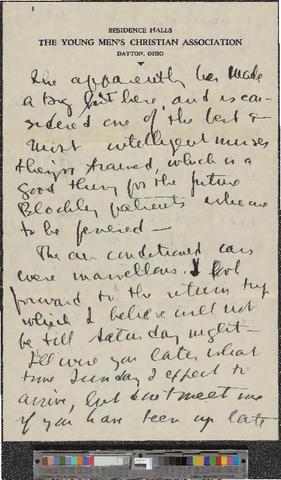 RESIDENCE HALLS
THE YOUNG MEN'S CHRISTIAN ASSOCIATION
DAYTON, OHIO
She apparently has made
a big hit here, and is con-
sidered one of the best &
most intelligent nurses
they've trained, which is a
good thing for the future
Blockley patients who are
to be fevered —
The air conditioned cars
were marvellous. I look
forward to the return trip
which I believe will not
be till Saturday night —
I'll wire you later what
time Sunday I expect to
arrive, but don't meet me
if you have been up late